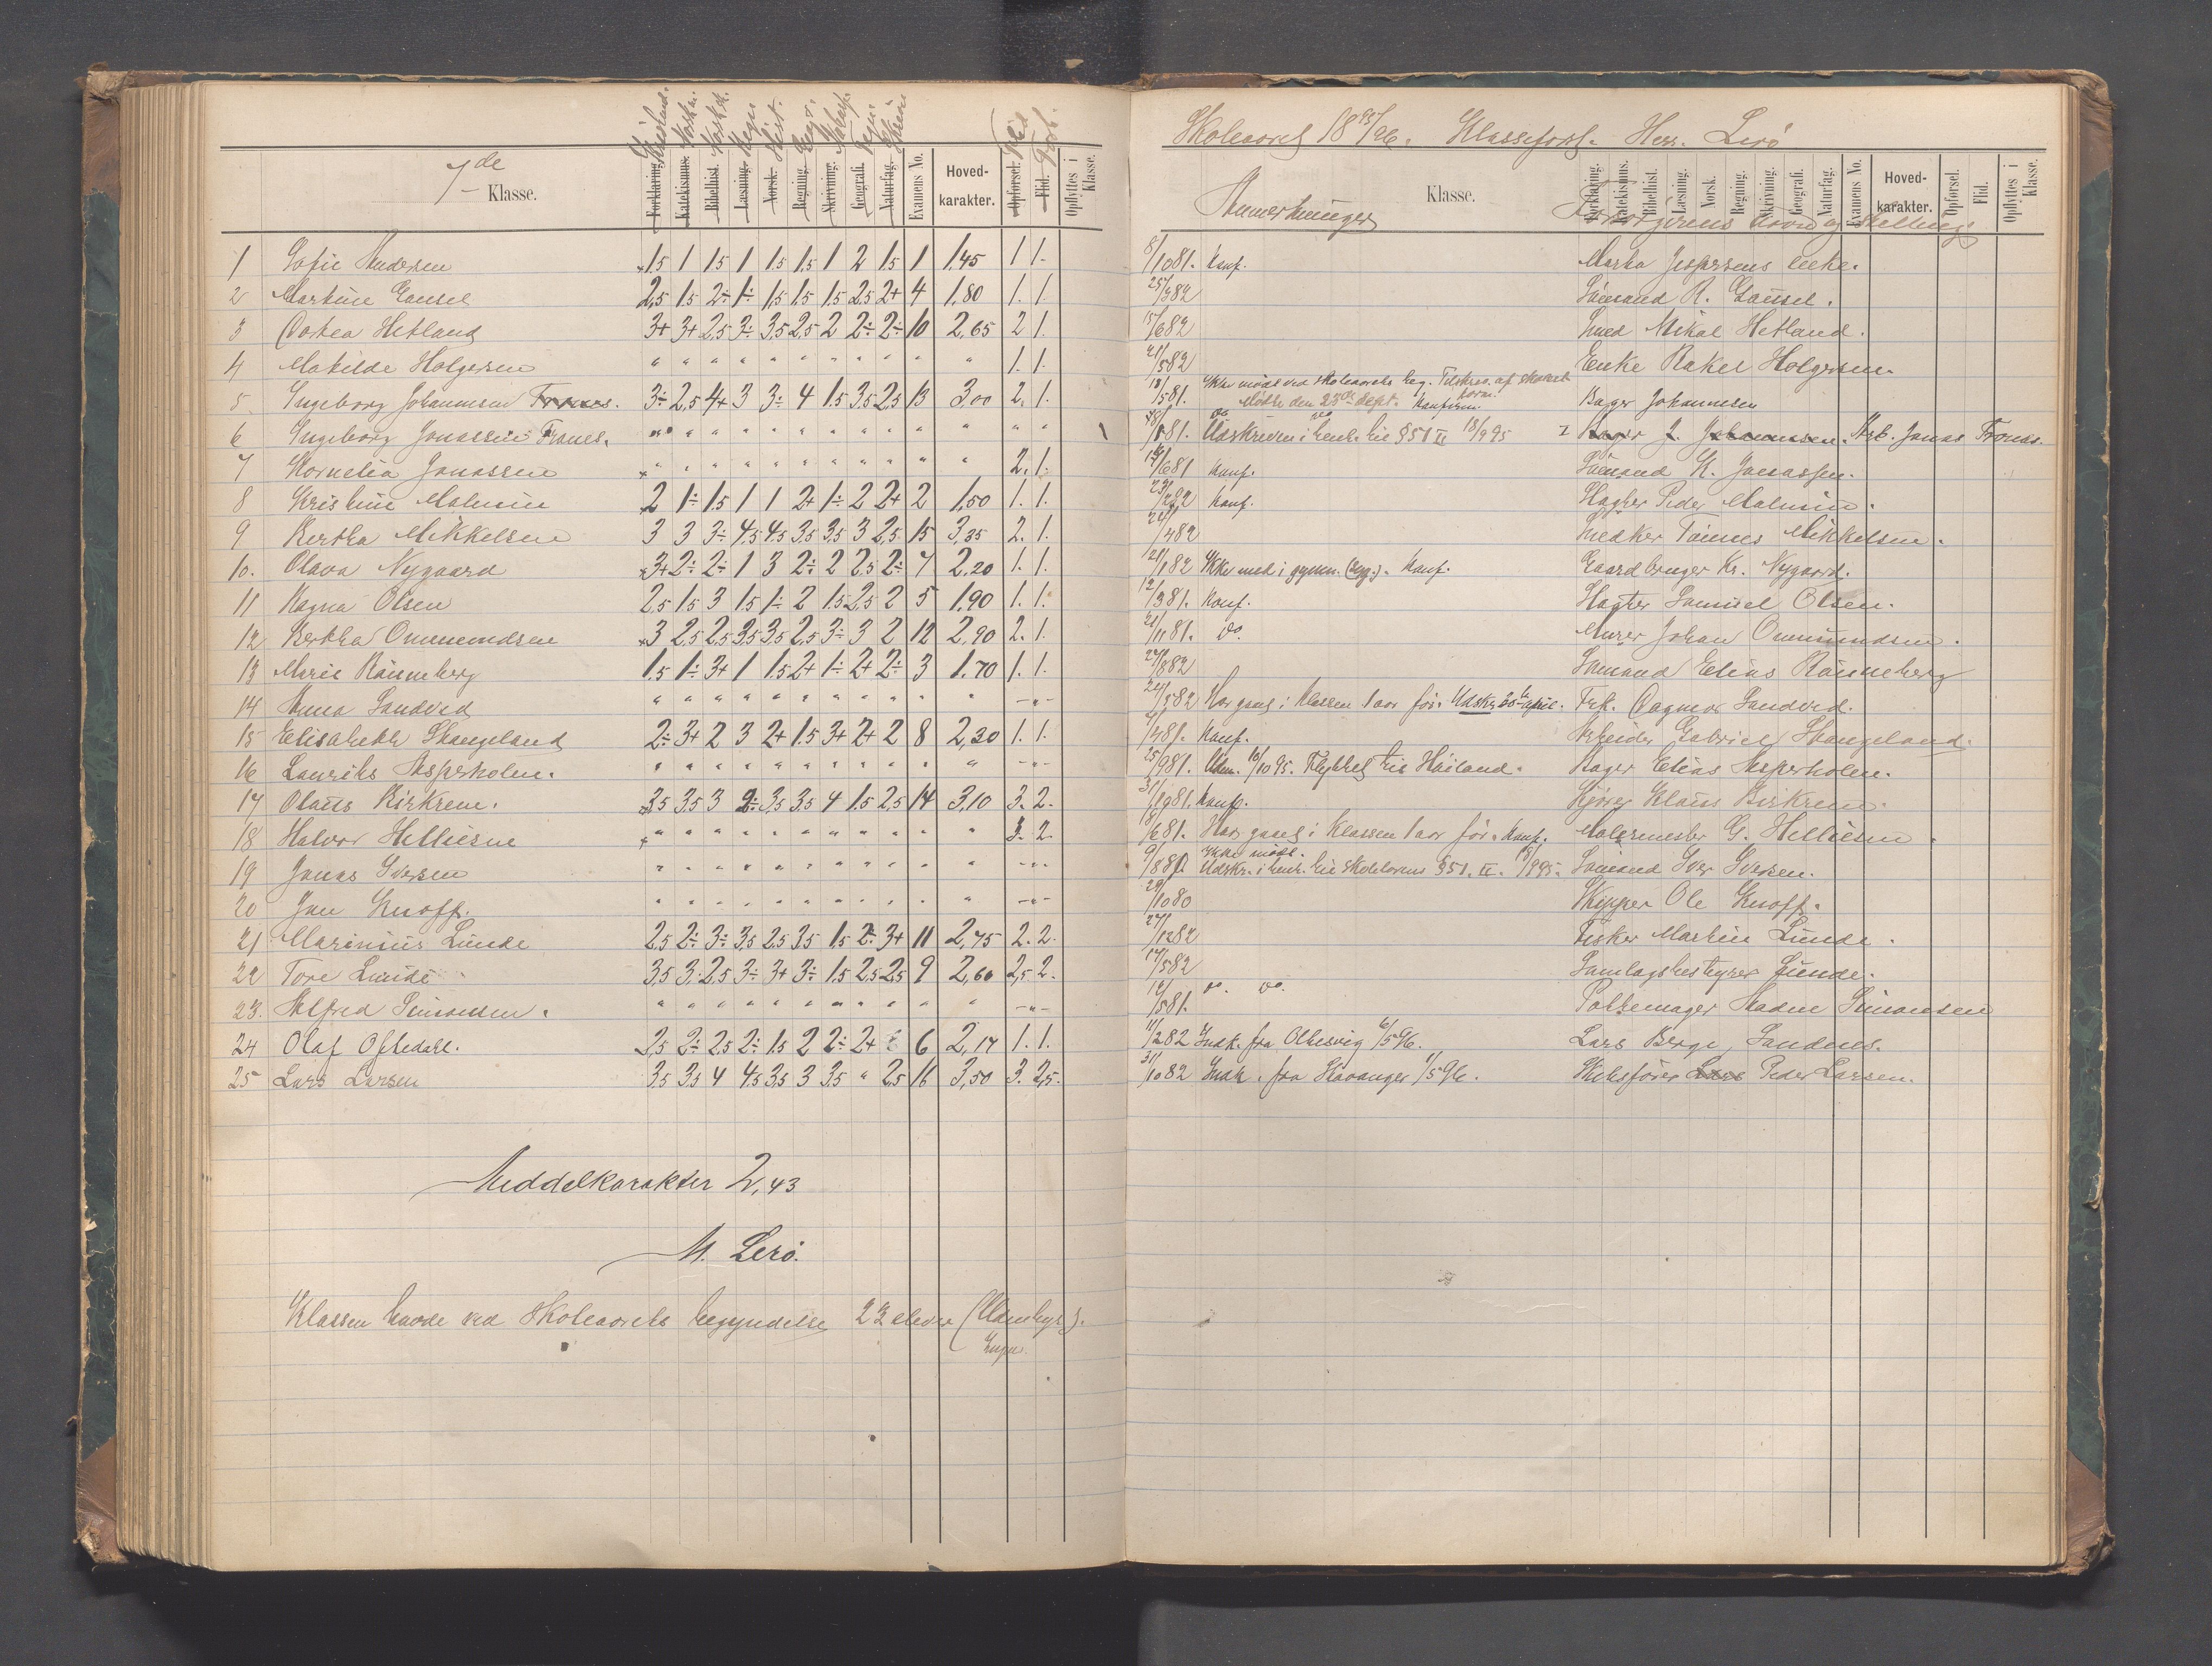 7de Klasse.
Forklaring. Katekismus. Bibelhist. Læsning. Norsk. Regning. Skrivning. Geografi. Naturfag. Examens No. Hoved-karakter. Opførsel. Flid. Opflyttes i Klasse.
1 Sofie Andersen 1.5 1 1.5 1 1.5 1.5 1 2 1.5 1 1,45 1 1.
2 Martine Gausel 2,5 1.5 2÷ 1÷ 1,5 1.5 1.5 2.5 2+ 4 1.80 1. 1.
3 Hetland 3+ 3+ 2,5 3÷ 3,5 2,5 2 2÷ 2÷ 10 2,65 2 1.
4 Matilde Holgersen " " " " " " " " " " " 1. 1.
5. Ingeborg Johannesen 3÷ 2,5 4+ 3 3÷ 4 1.5 3.5 2,5 13 3,00 2. 1.
6 Ingeborg Jonassen Frones. " " " " " " " " " " " " "
7 Kornelia Jonassen " " " " " " " " " " " 2. 1.
8 Kristine Malmin 2 1÷ 1.5 1 1 2+ 1÷ 2 2+ 2 1,50 1. 1.
9 Bertha Mikkelsen 3 3 3÷ 4.5 4.5 3.5 3,5 3 2,5 15 3,35 2. 1.
10. Olava Nygaard 3+ 2÷ 2÷ 1 3 2÷ 2 2.5 2÷ 7 2,20 1. 1.
11 Ragna Olsen 2,5 1.5 3 1.5 1÷ 2 1.5 2,5 2 5 1,90 1. 1.
12 Bertha Ommundsen 3 2,5 2,5 3,5 3,5 2,5 3÷ 3 2 12 2,90 2. 1.
13 Marie Rönneberg 1.5 1÷ 3+ 1 1.5 2+ 1÷ 2+ 2÷ 3 1.70 1. 1.
14 Anna Sandved " " " " " " " " " " -"-
15 Elisabeth Skangeland 2÷ 3+ 2 3 2+ 1.5 3+ 2+ 2 8 2,30 1. 1.
16 Laurits Asperholen. " " " " " " " " " " " -"-
17 Olaüs Birkrem. 3,5 3,5 3 2÷ 3,5 3,5 4 1.5 2,5 14 3,10 3. 2.
18 Halvor Helliesen " " " " " " " " " " " 3. 2.
19 Jonas Iversen " " " " " " " " " " " -"-
20 Jan Knoff. " " " " " " " " " " " -"-
21 Marinius Lunde 2,5 2÷ 3÷ 3,5 2,5 3.5 1.5 2÷ 3+ 11 2,75 2. 2.
22 Tore Lunde 3,5 3. 2.5 3÷ 3+ 3÷ 1.5 2,5 2,5 9 2,60 2,5 2.
23. Alfred Simonsen. " " " " " " " " " " " -"-
24 Olaf Oftedahl. 2,5 2÷ 2,5 2÷ 1.5 2 2÷ 2+ 6 2,17 1. 1.
25 Lars Larsen 3,5 3,5 4 4,5 3,5 3 3,5 " 2,5 16 3,50 3. 2,5.
Middelkarakter 2,43
M. Lerö.
Klassen havde ved skoleaarets begyndelse 23 elever
Skoleaaret 1895/96. Klasseforst. Herr. Lerö
Anmerkninger Klasse.
Forklaring. Katekismus. Bibelhist. Læsning. Norsk. Regning. Skrivning. Geografi. Naturfag. Examens No. Hoved-karakter. Opførsel. Flid. Opflyttes i Klasse.
Forsørgerens navn og stilling
8/10 81. Konf. Marta Jespersens enke.
25/3 82 Sömand R. Gausel.
15/6 82 Smed Mikal Hetland.
21/5 82 Enke Rakel Holgersen.
18/5 81. Ikke mödt ved skoleaarets beg. Mödte den 23de Sept. Konfirm. Bager Johannesen
81. Udskreven i henh. til § 51 II 18/9 95 Bager J. Johannesen. Arb. Jonas Frones.
/6 81 Konf. Sömand K. Jonassen.
23/2 82 Konf. Slagter Peder Malmin.
24/4 82 Snedker Tönnes Mikkelsen.
21/1 82 Ikke med i gymn. (syg.). Konf. Gaardbruger Kr. Nygaard.
12/3 81. Konf. Slagter Samuel Olsen.
21/11 81. do. Murer Johan Ommundsen.
27/8 82 Sömand Elias Rönneberg
24/5 82 Har gaaet i klassen 1 aar för. Udskr. 30te april. Frk. Dagmar Sandved.
7/4 81. Konf. Arbeider Gabriel Skangeland.
25/9 81. Udm. 16/10 95. Flyttet til Höiland. Bager Elias Asperholen.
31/10 81. Konf. Kjörer Klaus Birkrem.
18/6 81. Har gaaet i klassen 1 aar för. Konf. Malermester G. Helliesen.
9/8 81 Ikke mödt. Udskr. i henh. til skolelovens § 51. II. 18/9 95. Sömand Iver Iversen.
29/10 80 Skipper Ole Knoff.
27/12 82 Fisker Martin Lunde.
17/5 82 Samlagsbestyrer Lunde.
12/5 81. do. do. Pölsemager Simonsen
11/2 82 Indk. fra Oltesvig 6/5 96. Lars Berge, Sandnes.
31/10 82 Indk. fra Stavanger 1/5 96. Skibsförer Peder Larsen.